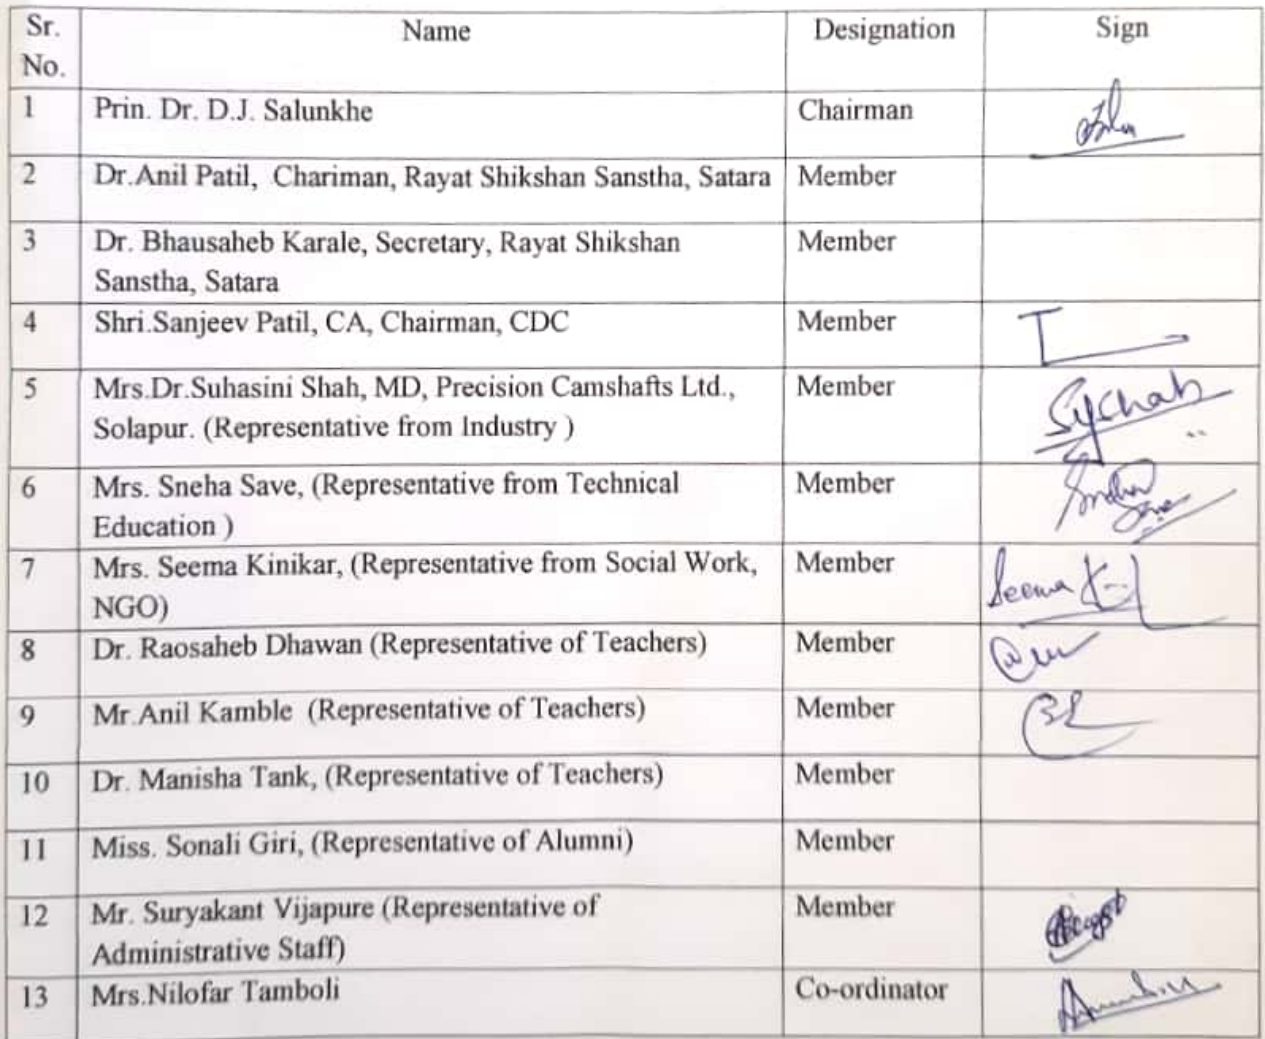 Sr. No. Name Designation Sign
1 Prin. Dr. D.J. Salunkhe Chairman
2 Dr.Anil Patil, Chariman, Rayat Shikshan Sanstha, Satara Member
3 Dr. Bhausaheb Karale, Secretary, Rayat Shikshan Member
Sanstha, Satara
4 Shri.Sanjeev Patil, CA, Chairman, CDC Member
5 Mrs.Dr.Suhasini Shah, MD, Precision Camshafts Ltd., Member
Solapur. (Representative from Industry )
6 Mrs. Sneha Save, (Representative from Technical Member
Education )
7 Mrs. Seema Kinikar, (Representative from Social Work, Member Seema K
NGO)
8 Dr. Raosaheb Dhawan (Representative of Teachers) Member
9 Mr.Anil Kamble (Representative of Teachers) Member
10 Dr. Manisha Tank, (Representative of Teachers) Member
11 Miss. Sonali Giri, (Representative of Alumni) Member
12 Mr. Suryakant Vijapure (Representative of Member
Administrative Staff)
13 Mrs.Nilofar Tamboli Co-ordinator